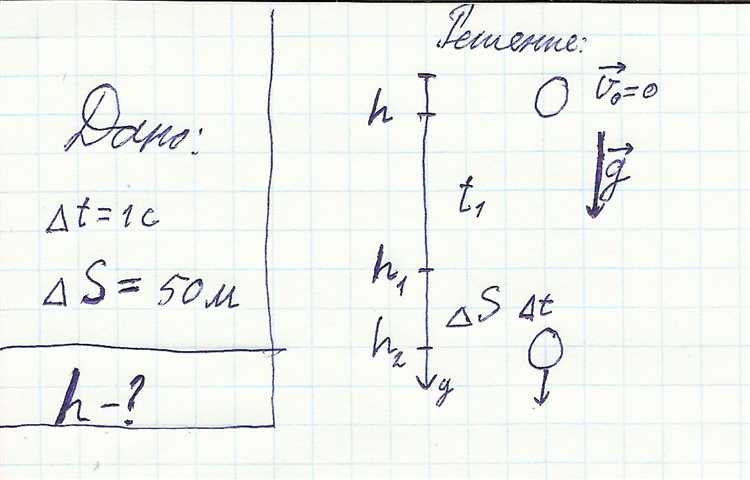 Дано:
Δt=1с
ΔS=50м
h-?
Решение:
h
v⃗₀=0
g⃗
t₁
h₁
ΔS Δt
h₂
y